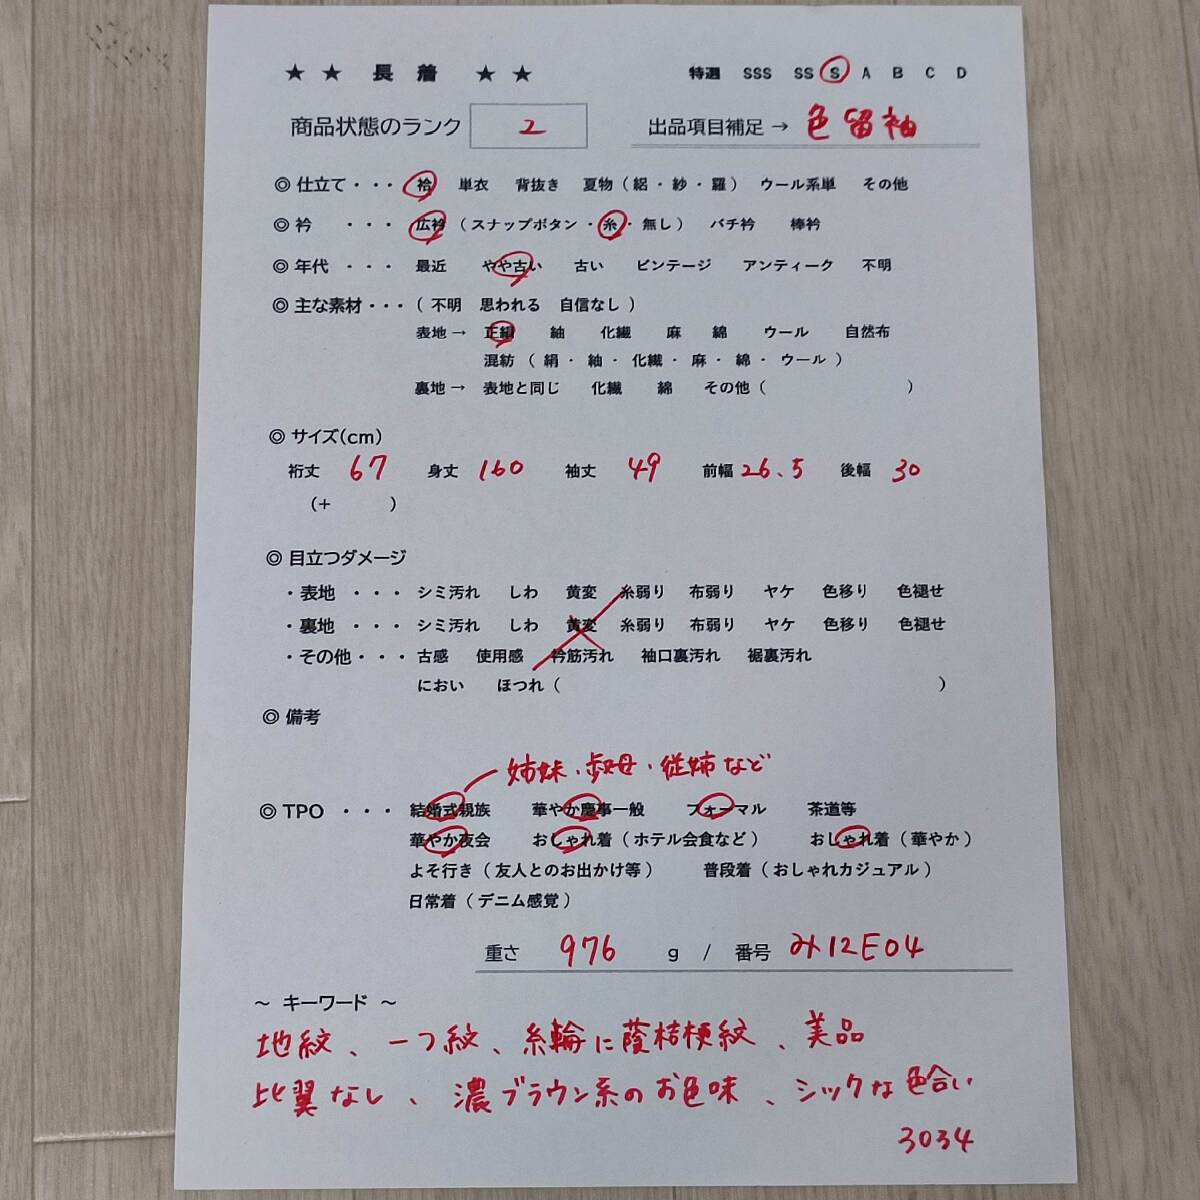 ★ ★ 長 着 ★ ★ 特選 SSS SS S A B C D
商品状態のランク 2 出品項目補足→ 色留袖
◎ 仕立て・・・ 袷 単衣 背抜き 夏物(絽・紗・羅) ウール系単 その他
◎ 衿 ・・・ 広衿 (スナップボタン・糸・無し) バチ衿 棒衿
◎ 年代 ・・・ 最近 やや古い 古い ビンテージ アンティーク 不明
◎ 主な素材・・・(不明 思われる 自信なし)
表地→ 正絹 紬 化繊 麻 綿 ウール 自然布
混紡 (絹・紬・化繊・麻・綿・ウール)
裏地→ 表地と同じ 化繊 綿 その他( )
◎ サイズ(cm)
裄丈 67 身丈 160 袖丈 49 前幅 26.5 後幅 30
(+ )
◎ 目立つダメージ
・表地 ・・・ シミ汚れ しわ 黄変 糸弱り 布弱り ヤケ 色移り 色褪せ
・裏地 ・・・ シミ汚れ しわ 黄変 糸弱り 布弱り ヤケ 色移り 色褪せ
・その他・・・ 古感 使用感 衿筋汚れ 袖口裏汚れ 裾裏汚れ
におい ほつれ( )
◎ 備考
姉妹・叔母・従姉など
◎ TPO ・・・ 結婚式親族 華やか慶事一般 フォーマル 茶道等
華やか夜会 おしゃれ着(ホテル会食など) おしゃれ着(華やか)
よそ行き(友人とのお出かけ等) 普段着(おしゃれカジュアル)
日常着(デニム感覚)
重さ 976 g / 番号 み12E04
~ キーワード ~
地紋、一つ紋、糸輪に蔭桔梗紋、美品
比翼なし、濃ブラウン系のお色味、シックな色合い
3034